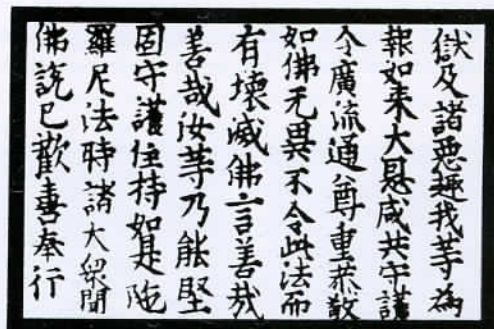 獄及諸惡趣我等為
報如来大恩咸共守護
令廣流通尊重恭敬
如佛无異不令此法而
有壞滅佛言善哉
善哉汝等乃能堅
固守護住持如是陁
羅尼法時諸大眾聞
佛說已歡喜奉行